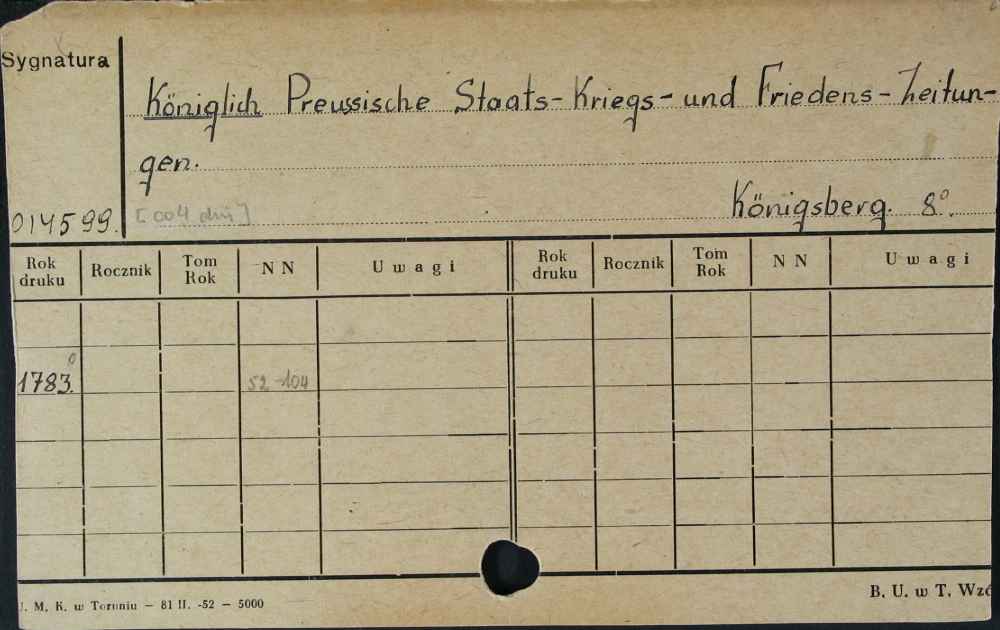 Sygnatura
Königlich Preussische Staats-Kriegs-und Friedens-Zeitun-
gen.
Königsberg. 8º.
014599.
Rok druku Rocznik Tom Rok N N Uwagi Rok druku Rocznik Tom Rok N N Uwagi
1783. 52-104
. M. K. w Toruniu — 81 II. -52 — 5000
B. U. w T. Wzó